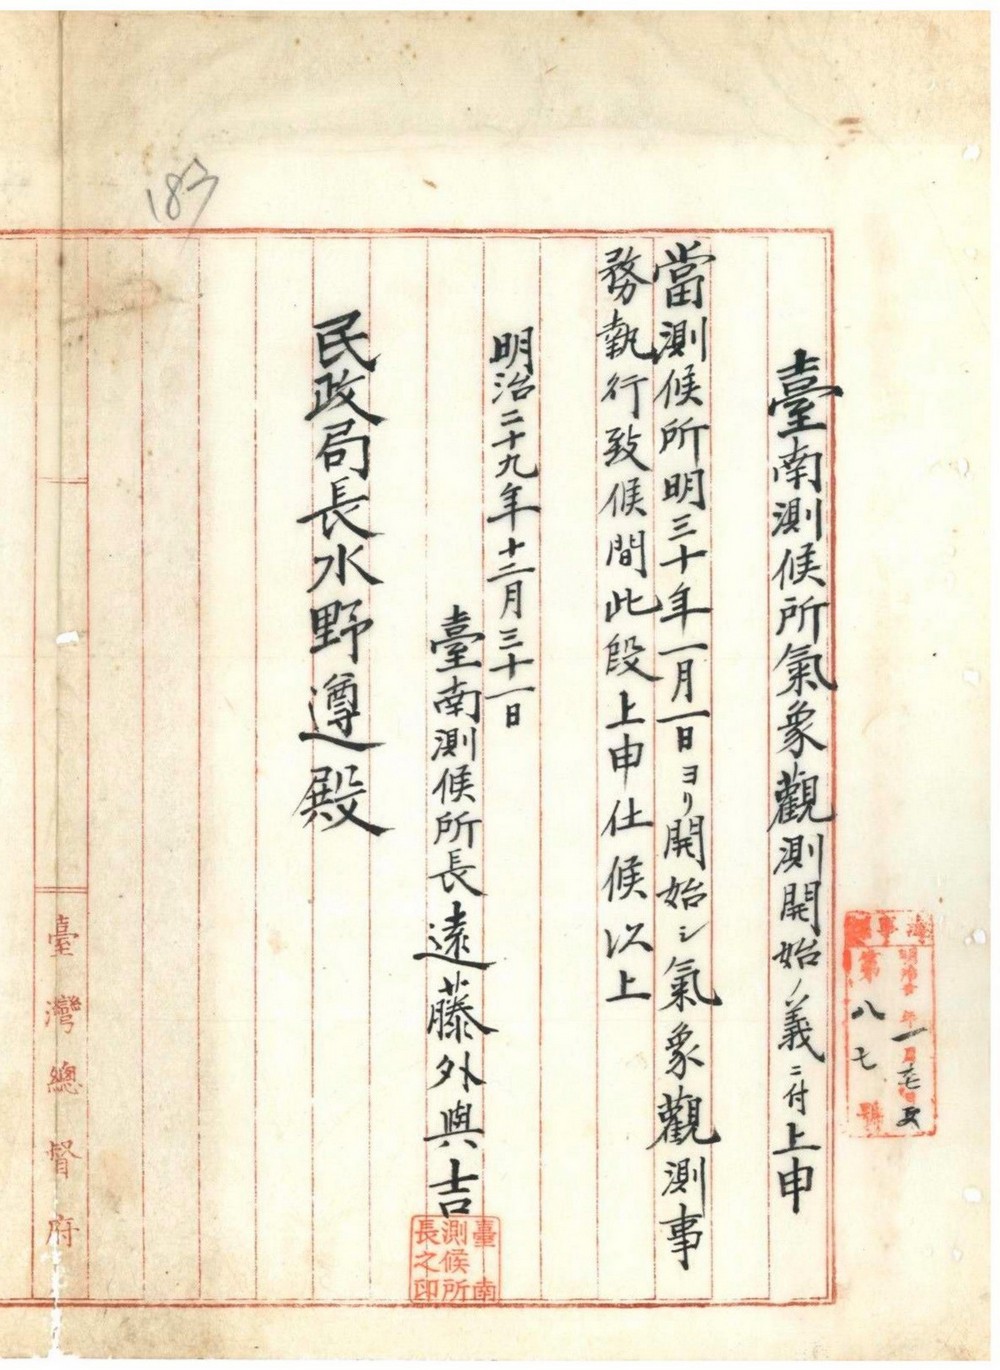 臺南測候所氣象觀測開始ノ義ニ付上申
當測候所明三十年一月一日ヨリ開始シ氣象觀測事
務執行致候間此段上申仕候以上
明治二十九年十二月三十一日
臺南測候所長遠藤外與吉
臺南
測候所
長之印
民政局長水野遵殿
臺灣總督府
183
第八七號